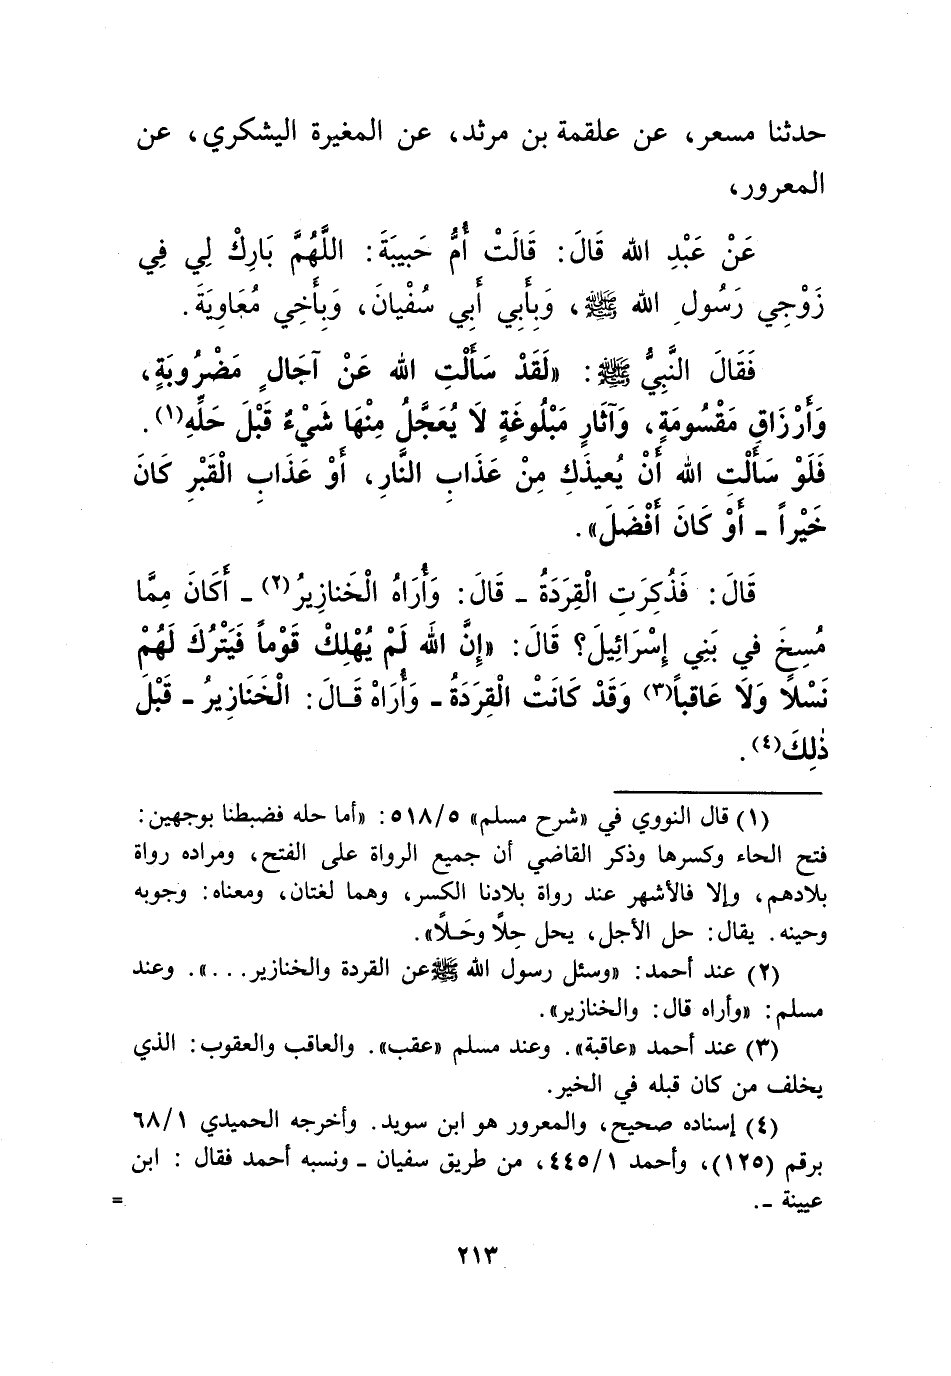 حدثنا مسعر، عن علقمة بن مرثد، عن المغيرة اليشكري، عن
المعرور،
عَنْ عَبْدِ الله قَالَ: قَالَتْ أُمُّ حَبِيبَةَ: اللَّهُمَّ بَارِكْ لِي فِي
زَوْجِي رَسُولِ الله ﷺ، وَبِأَبِي أَبِي سُفْيانَ، وَبِأَخِي مُعَاوِيَةَ.
فَقَالَ النَّبِيُّ ﷺ: «لَقَدْ سَأَلْتِ الله عَنْ آجَالٍ مَضْرُوبَةٍ،
وَأَرْزَاقٍ مَقْسُومَةٍ، وَآثَارٍ مَبْلُوغَةٍ لَا يُعَجَّلُ مِنْهَا شَيْءٌ قَبْلَ حَلِّهِ(١).
فَلَوْ سَأَلْتِ الله أَنْ يُعِيذَكِ مِنْ عَذَابِ النَّارِ، أَوْ عَذَابِ الْقَبْرِ كَانَ
خَيْراً - أَوْ كَانَ أَفْضَلَ».
قَالَ: فَذُكِرَتِ الْقِرَدَةُ - قَالَ: وَأُرَاهُ الْخَنازِيرُ(٢) - أَكَانَ مِمَّا
مُسِخَ في بَنِي إِسْرَائِيلَ؟ قَالَ: «إِنَّ الله لَمْ يُهْلِكْ قَوْماً فَيَتْرُكَ لَهُمْ
نَسْلًا وَلَا عَاقباً(٣) وَقَدْ كَانَتْ الْقِرَدَةُ - وَأُرَاهْ قَالَ: الْخَنَازِيرُ - قَبْلَ
ذٰلِكَ(٤).
(١) قال النووي في «شرح مسلم» ٥/٥١٨: «أما حله فضبطنا بوجهين:
فتح الحاء وكسرها وذكر القاضي أن جميع الرواة على الفتح، ومراده رواة
بلادهم، وإلا فالأشهر عند رواة بلادنا الكسر، وهما لغتان، ومعناه: وجوبه
وحينه. يقال: حل الأجل، يحل حِلاًّ وحَلاًّ».
(٢) عند أحمد: «وسئل رسول الله ﷺ عن القردة والخنازير...». وعند
مسلم: «وأراه قال: والخنازير».
(٣) عند أحمد «عاقبة». وعند مسلم «عقب». والعاقب والعقوب: الذي
يخلف من كان قبله في الخير.
(٤) إسناده صحيح، والمعرور هو ابن سويد. وأخرجه الحميدي ٦٨/١
برقم (١٢٥)، وأحمد ٤٤٥/١، من طريق سفيان - ونسبه أحمد فقال : ابن
عيينة -. =
٢١٣